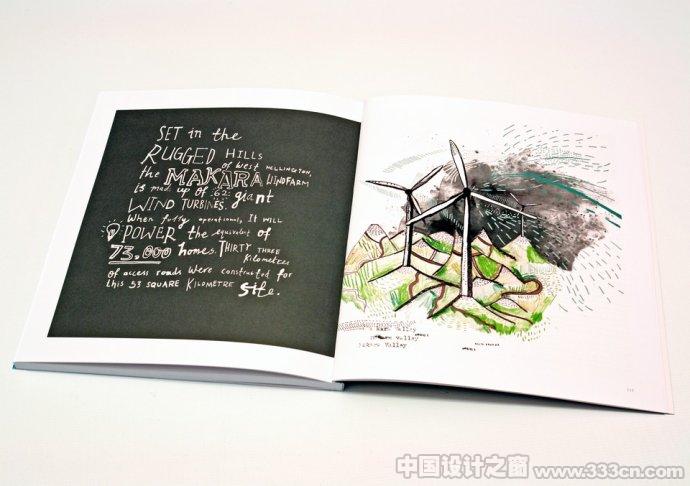 SET in the
RUGGED HILLS
of west WELLINGTON,
the MAKARA WINDFARM
is made up of 62 giant
WIND TURBINES.
When fully operational, It WILL
POWER the equivalent of
73,000 homes. THIRTY THREE
Kilometres
of access roads were constructed for
this 53 SQUARE KILOMETRE site.
Valley
Valley
Valley
中国设计之窗 www.333cn.com